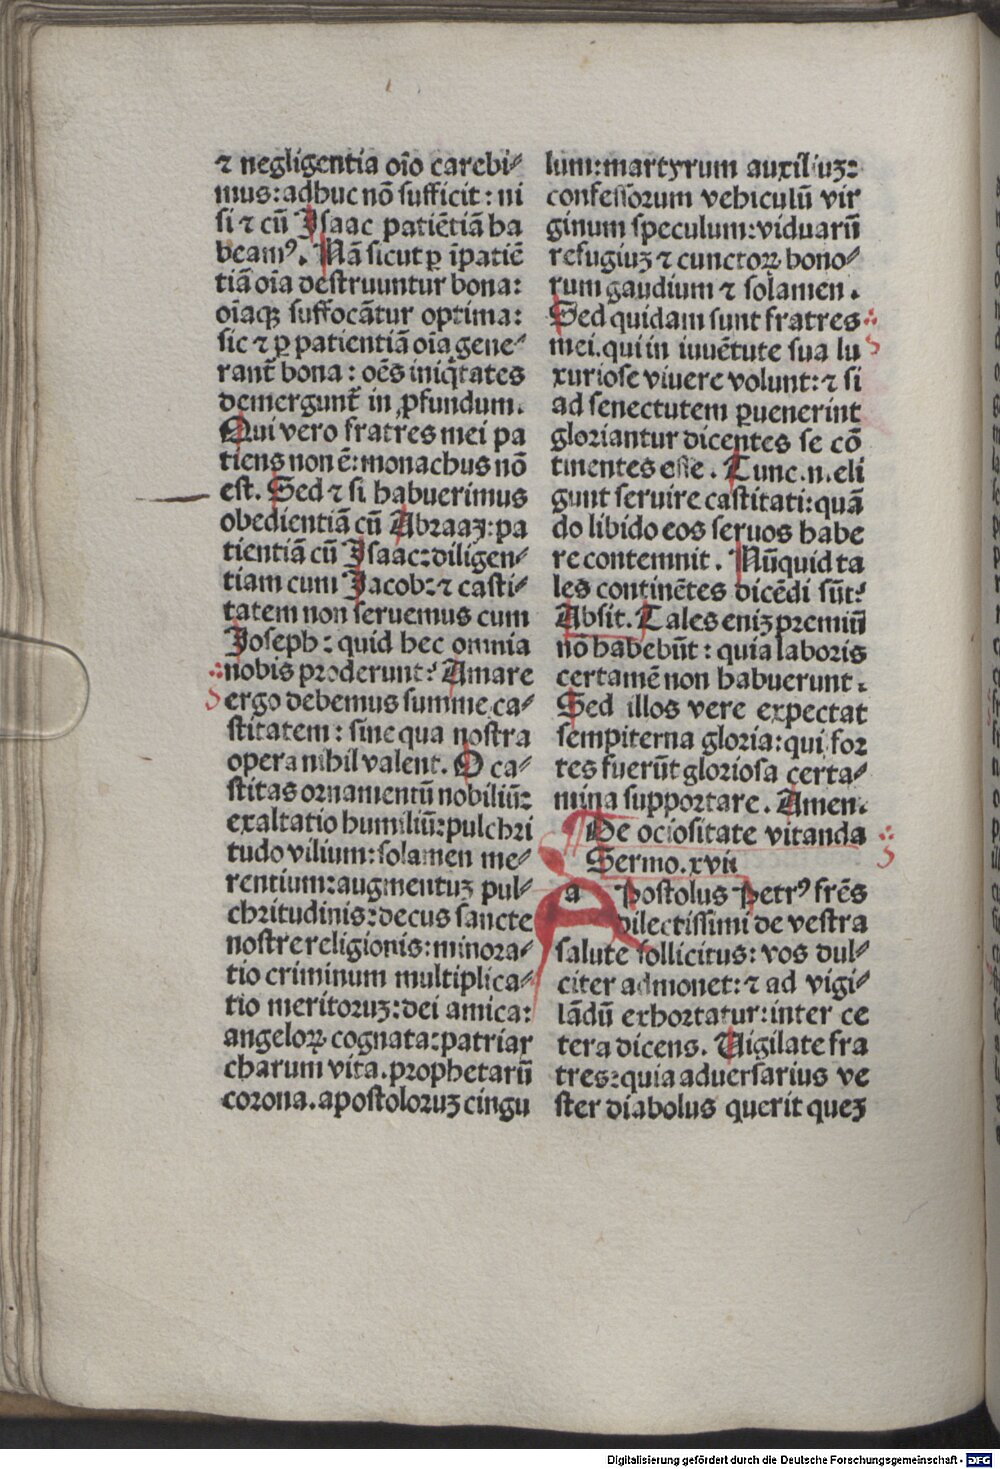 ⁊ negligentia oı̄o carebi⸗
mus: adhuc nō sufficit: ni
si ⁊ cū Isaac patiētiā ha
beamꝰ. Nā sicut ꝑ īpatiē
tiā oīa destruuntur bona:
oīaqꝫ suffocātur optima:
sic ⁊ ꝑ patientiā oīa gene⸗
rant̄ bona: oēs iniqͥtates
demergunt̄ in ꝓfundum.
Qui vero fratres mei pa
tiens non ē: monachus nō
est. Sed ⁊ si habuerimus
obedientiā cū Abraaꝫ: pa
tientiā cū Isaac: diligen⸗
tiam cum Jacob: ⁊ casti⸗
tatem non seruemus cum
Joseph: quid hec omnia
nobis proderunt? Amare
ergo debemus summe ca⸗
stitatem: sine qua nostra
opera nihil valent. O ca⸗
stitas ornamentū nobiliū:
exaltatio humiliū: pulchri
tudo vilium: solamen me⸗
rentium: augmentuꝫ pul⸗
chritudinis: decus sancte
nostre religionis: minora⸗
tio criminum multiplica⸗
tio meritoruꝫ: dei amica:
angeloꝝ cognata: patriar
charum vita. prophetarū
corona. apostoloruꝫ cingu
lum: martyrum auxiliuꝫ:
confessorum vehiculū vir
ginum speculum: viduarū
refugiuꝫ ⁊ cunctoꝝ bono⸗
rum gaudium ⁊ solamen.
Sed quidam sunt fratres
mei. qui in iuuētute sua lu
xuriose viuere volunt: ⁊ si
ad senectutem ꝑuenerint
gloriantur dicentes se cō
tinentes esse. Tunc .n. eli
gunt seruire castitati: quā
do libido eos seruos habe
re contemnit. Nūquid ta
les continētes dicēdi sūt?
Absit. Tales eniꝫ premiū
nō habebūt: quia laboris
certamē non habuerunt.
Sed illos vere expectat
sempiterna gloria: qui for
tes fuerūt gloriosa certa⸗
mina supportare. Amen.
De ociositate vitanda
Sermo. xvii
a Postolus Petrꝰ frēs
dilectissimi de vestra
salute sollicitus: vos dul⸗
citer admonet: ⁊ ad vigi⸗
lādū exhortatur: inter ce
tera dicens. Uigilate fra
tres: quia aduersarius ve
ster diabolus querit queꝫ
Digitalisierung gefördert durch die Deutsche Forschungsgemeinschaft - DFG